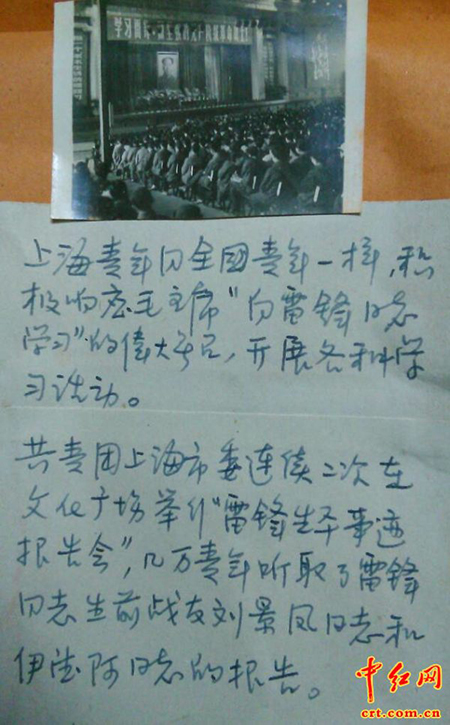 上海青年同全國青年一样，积
极响应毛主席“向雷锋同志
学习”的偉大号召，开展各种学
习活动。
共青团上海市委连续二次在
文化广场举行“雷锋生平事迹
报告会”，几万青年听取了雷锋
同志生前战友刘景凤同志和
伊德阿同志的报告。
中红网
crt.com.cn